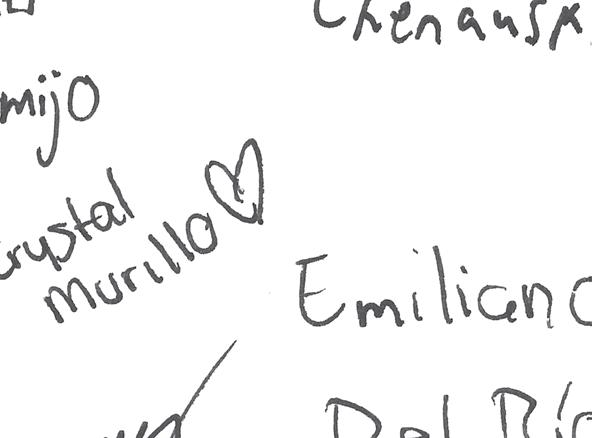 Chenausk
mijo
Crystal
Murillo
Emiliano
Del Río